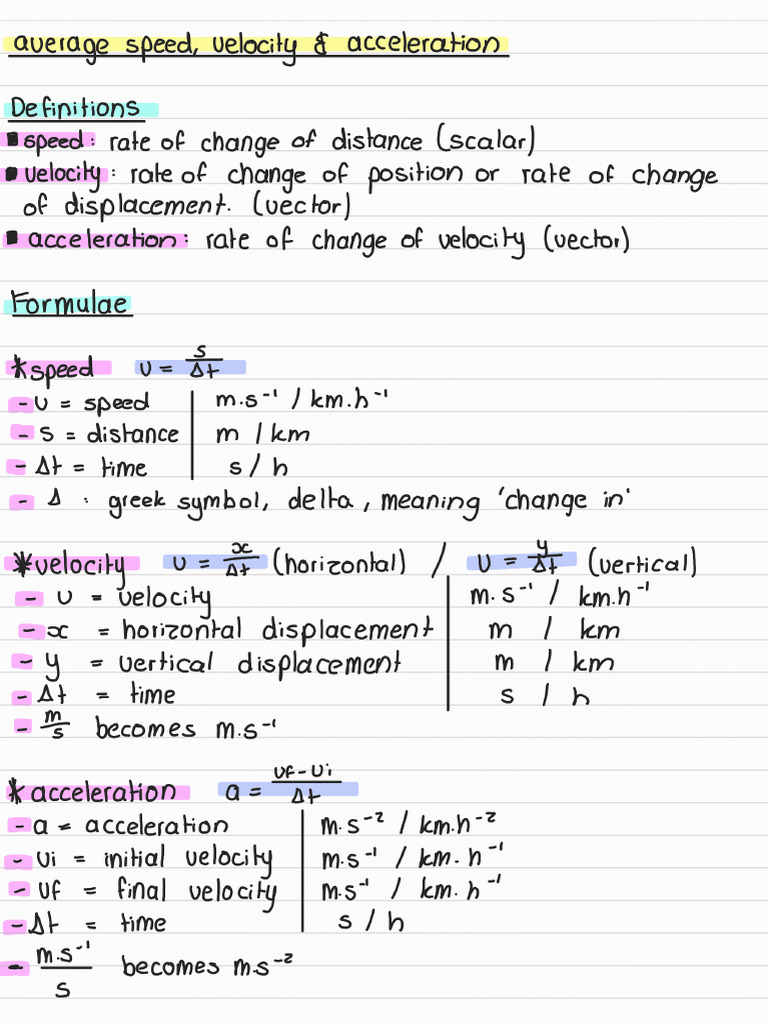 average speed, velocity & acceleration
Definitions
▪ speed: rate of change of distance (scalar)
▪ velocity: rate of change of position or rate of change
of displacement. (vector)
▪ acceleration: rate of change of velocity (vector)
Formulae
* speed v = s/Δt
- v = speed | m.s⁻¹ / km.h⁻¹
- s = distance | m / km
- Δt = time | s / h
- Δ : greek symbol, delta, meaning 'change in'
* velocity v = x/Δt (horizontal) / v = y/Δt (vertical)
- v = velocity | m.s⁻¹ / km.h⁻¹
- x = horizontal displacement | m / km
- y = vertical displacement | m / km
- Δt = time | s / h
- m/s becomes m.s⁻¹
* acceleration a = vf-vi/Δt
- a = acceleration | m.s⁻² / km.h⁻²
- vi = initial velocity | m.s⁻¹ / km.h⁻¹
- vf = final velocity | m.s⁻¹ / km.h⁻¹
- Δt = time | s / h
- m.s⁻¹/s becomes m.s⁻²